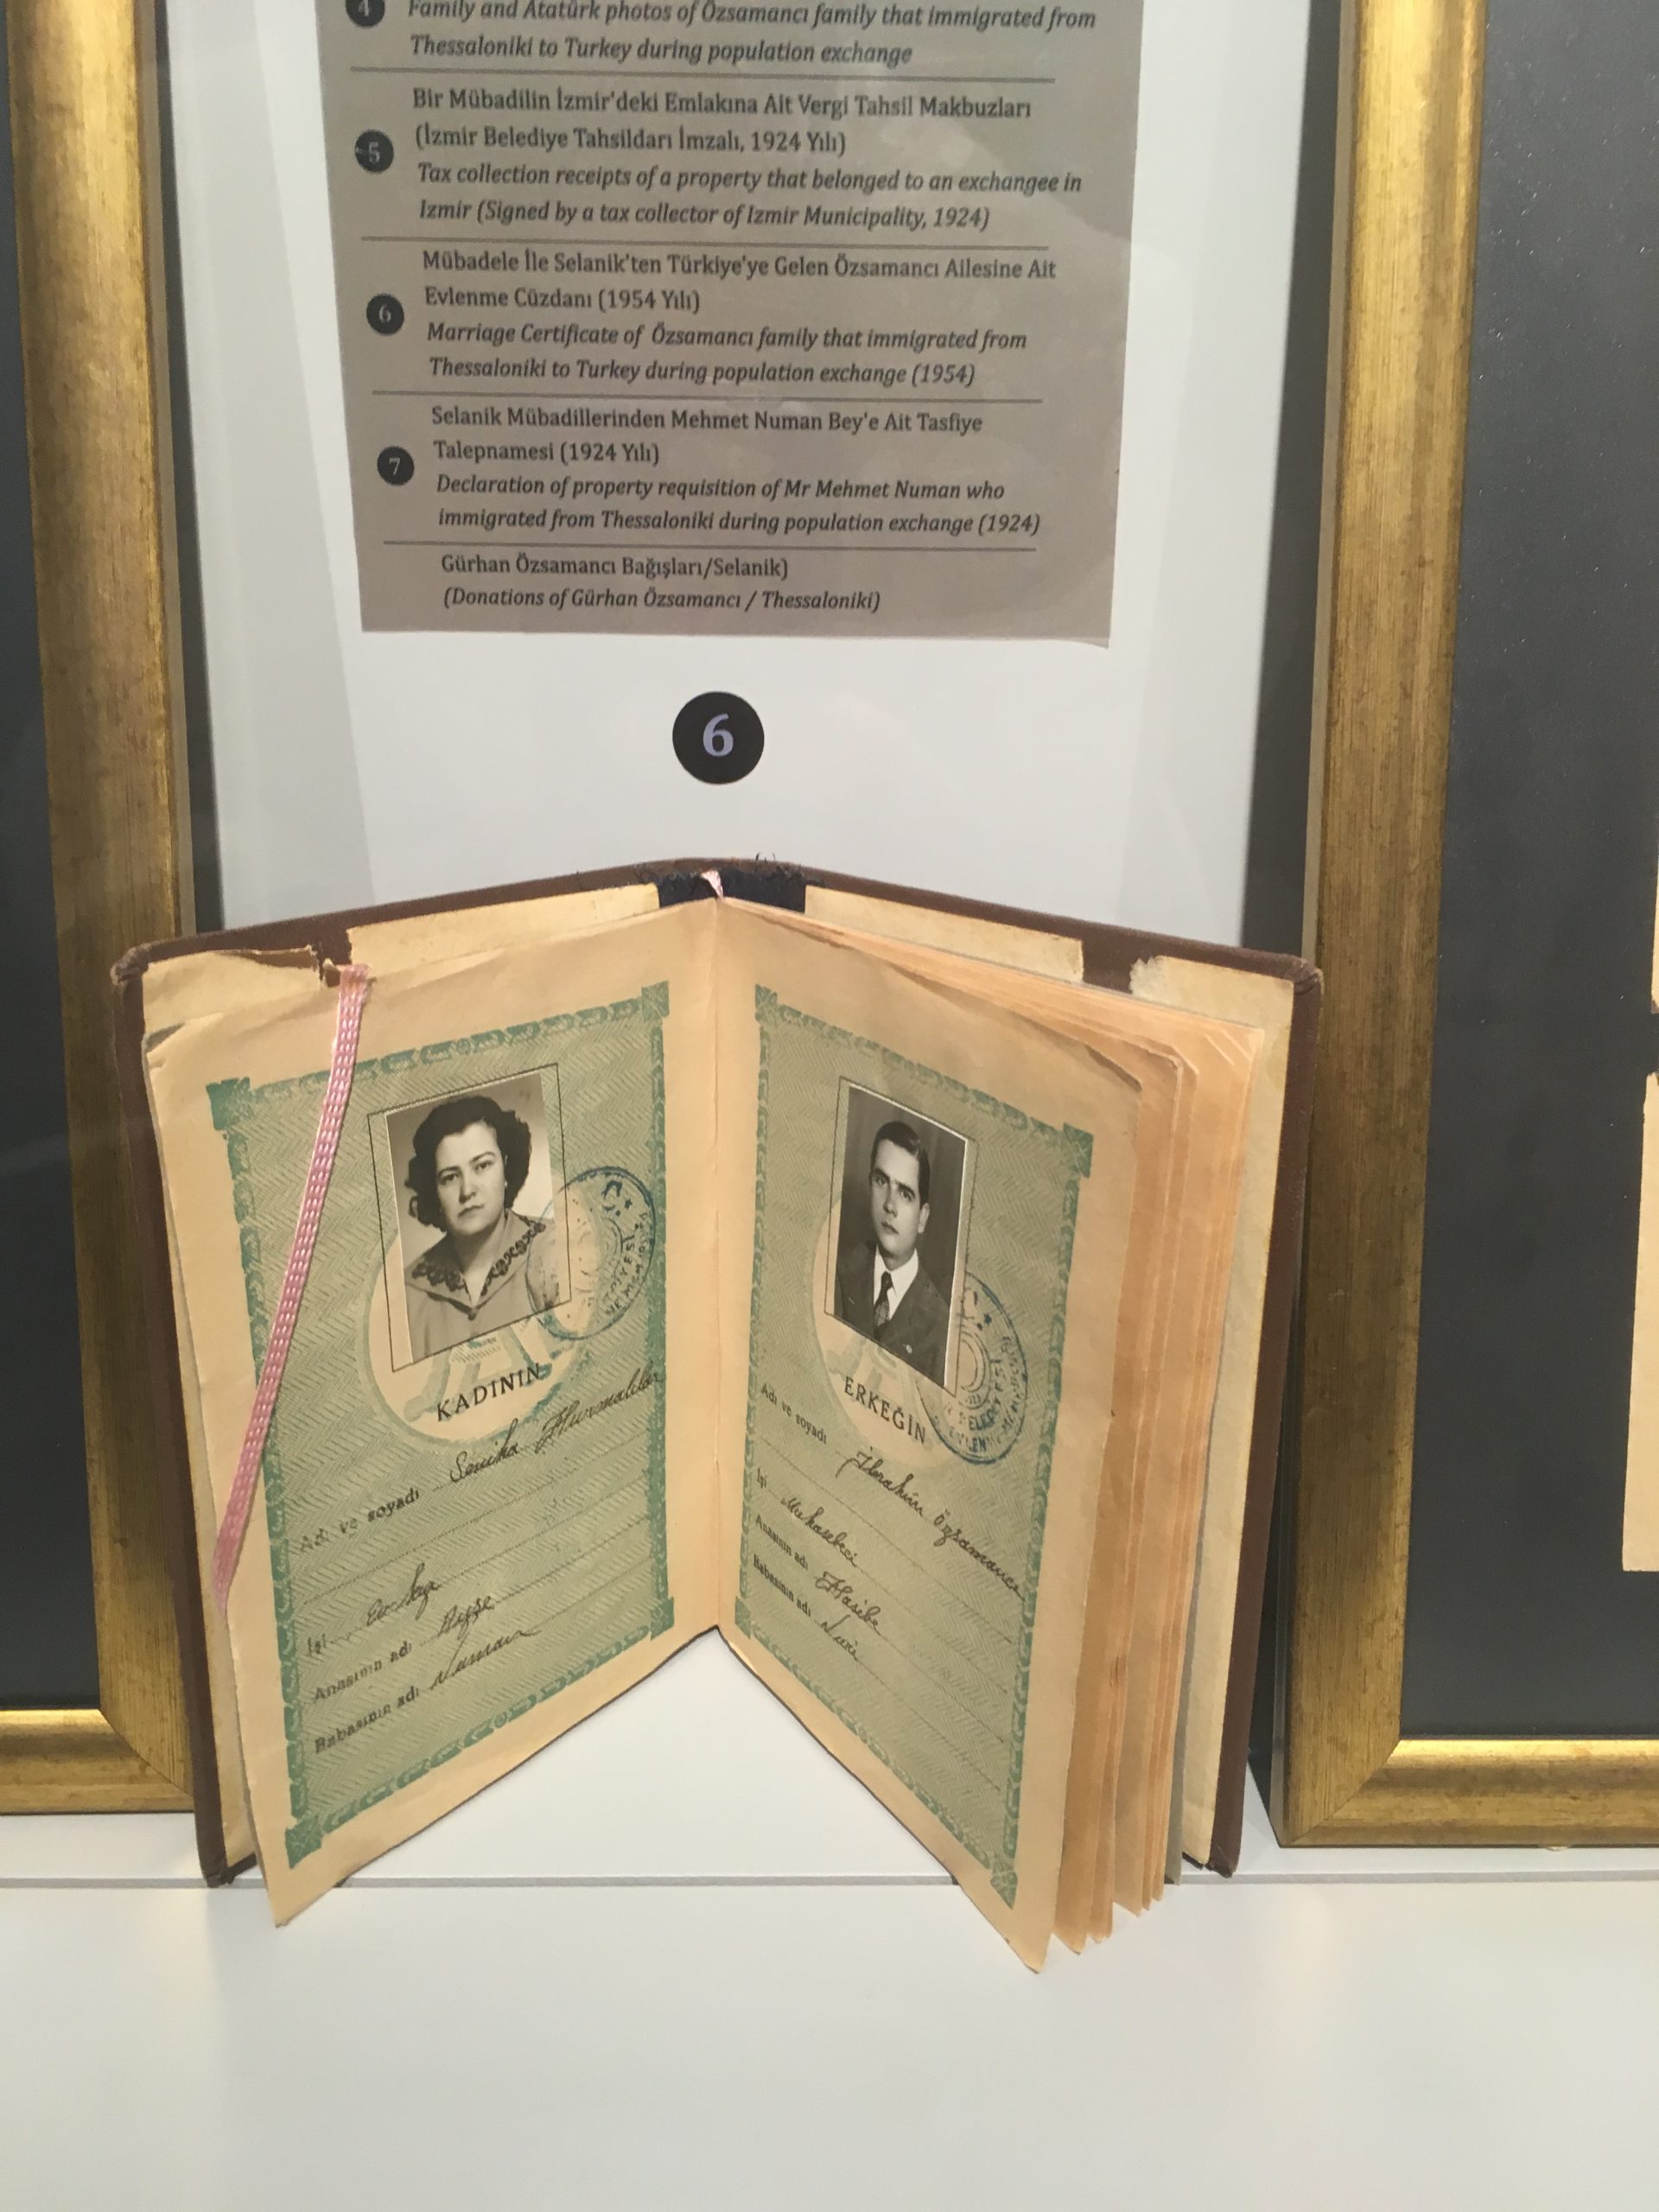 4
Family and Atatürk photos of Özsamancı family that immigrated from
Thessaloniki to Turkey during population exchange
5
Bir Mübadilin İzmir'deki Emlakına Ait Vergi Tahsil Makbuzları
(İzmir Belediye Tahsildarı İmzalı, 1924 Yılı)
Tax collection receipts of a property that belonged to an exchangee in
Izmir (Signed by a tax collector of Izmir Municipality, 1924)
6
Mübadele İle Selanik'ten Türkiye'ye Gelen Özsamancı Ailesine Ait
Evlenme Cüzdanı (1954 Yılı)
Marriage Certificate of Özsamancı family that immigrated from
Thessaloniki to Turkey during population exchange (1954)
7
Selanik Mübadillerinden Mehmet Numan Bey'e Ait Tasfiye
Talepnamesi (1924 Yılı)
Declaration of property requisition of Mr Mehmet Numan who
immigrated from Thessaloniki during population exchange (1924)
Gürhan Özsamancı Bağışları/Selanik)
(Donations of Gürhan Özsamancı / Thessaloniki)
6
KADININ
Adı ve soyadı Seniha Hurmalılar
İşi
Anasının adı Ayşe
Babasının adı Numan
ERKEĞİN
Adı ve soyadı İbrahim Özsamancı
İşi Muhasebeci
Anasının adı Hasibe
Babasının adı Nuri